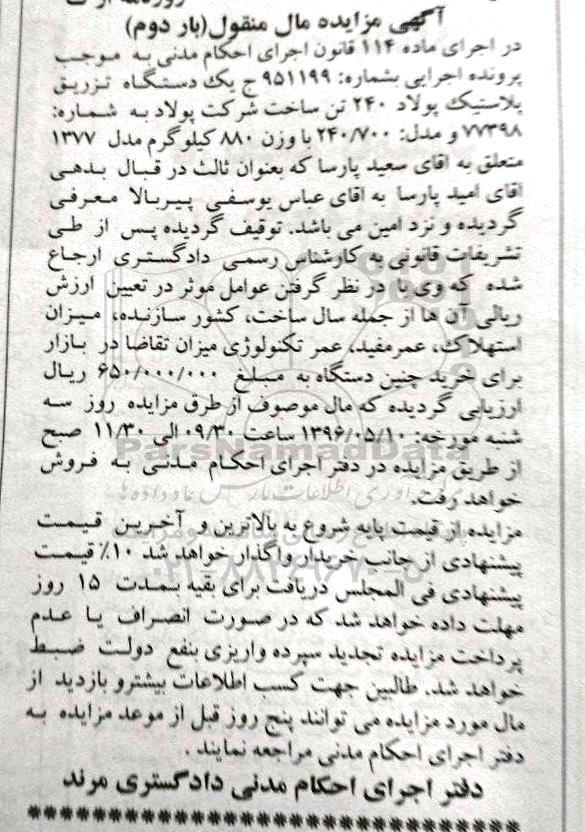 آگهی مزایده مال منقول(بار دوم)
در اجرای ماده ۱۱۴ قانون اجرای احکام مدنی به موجب
پرونده اجرایی بشماره: ۹۵۱۱۹۹ ج یک دستگاه تزریق
پلاستیک پولاد ۲۴۰ تن ساخت شرکت پولاد به شماره:
۷۷۳۹۸ و مدل: ۲۴۰/۷۰۰ با وزن ۸۸۰ کیلوگرم مدل ۱۳۷۷
متعلق به اقای سعید پارسا که بعنوان ثالث در قبال بدهی
آقای امید پارسا به اقای عباس یوسفی پیربالا معرفی
گردیده و نزد امین می باشد. توقیف گردیده پس از طی
تشریفات قانونی به کارشناس رسمی دادگستری ارجاع
شده که وی با در نظر گرفتن عوامل موثر در تعیین ارزش
ریالی آن ها از جمله سال ساخت، کشور سازنده، میزان
استهلاک، عمرمفید، عمر تکنولوژی میزان تقاضا در بازار
برای خرید چنین دستگاه به مبلغ ۶۵۰/۰۰۰/۰۰۰ ریال
ارزیابی گردیده که مال موصوف از طرق مزایده روز سه
شنبه مورخه: ۱۳۹۶/۰۵/۱۰ ساعت ۰۹/۳۰ الی ۱۱/۳۰ صبح
از طریق مزایده در دفتر اجرای احکام مدنی به فروش
خواهد رفت.
مزایده از قیمت پایه شروع به بالاترین و آخرین قیمت
پیشنهادی از جانب خریدار واگذار خواهد شد ۱۰٪ قیمت
پیشنهادی فی المجلس دریافت برای بقیه بمدت ۱۵ روز
مهلت داده خواهد شد که در صورت انصراف یا عدم
پرداخت مزایده تجدید سپرده واریزی بنفع دولت ضبط
خواهد شد. طالبین جهت کسب اطلاعات بیشترو بازدید از
مال مورد مزایده می توانند پنج روز قبل از موعد مزایده به
دفتر اجرای احکام مدنی مراجعه نمایند .
دفتر اجرای احکام مدنی دادگستری مرند
ParsNamadData